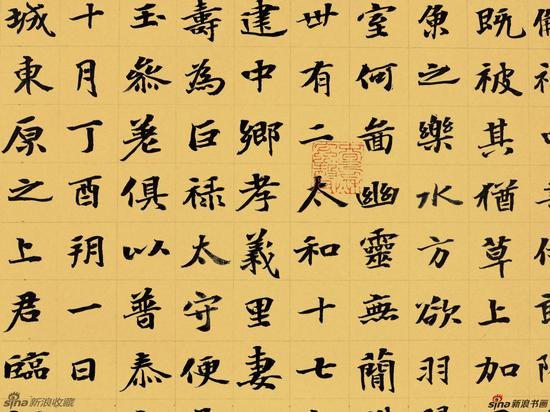 既被其猶草上加
魚之樂水方欲羽
室何啚幽靈無簡
卅有二太和十七
建中鄉孝義里妻
壽為巨祿太守便
玉叅差俱以普泰
十月丁酉朔一日
城東原之上君臨
sina新浪收藏
sina新浪书画